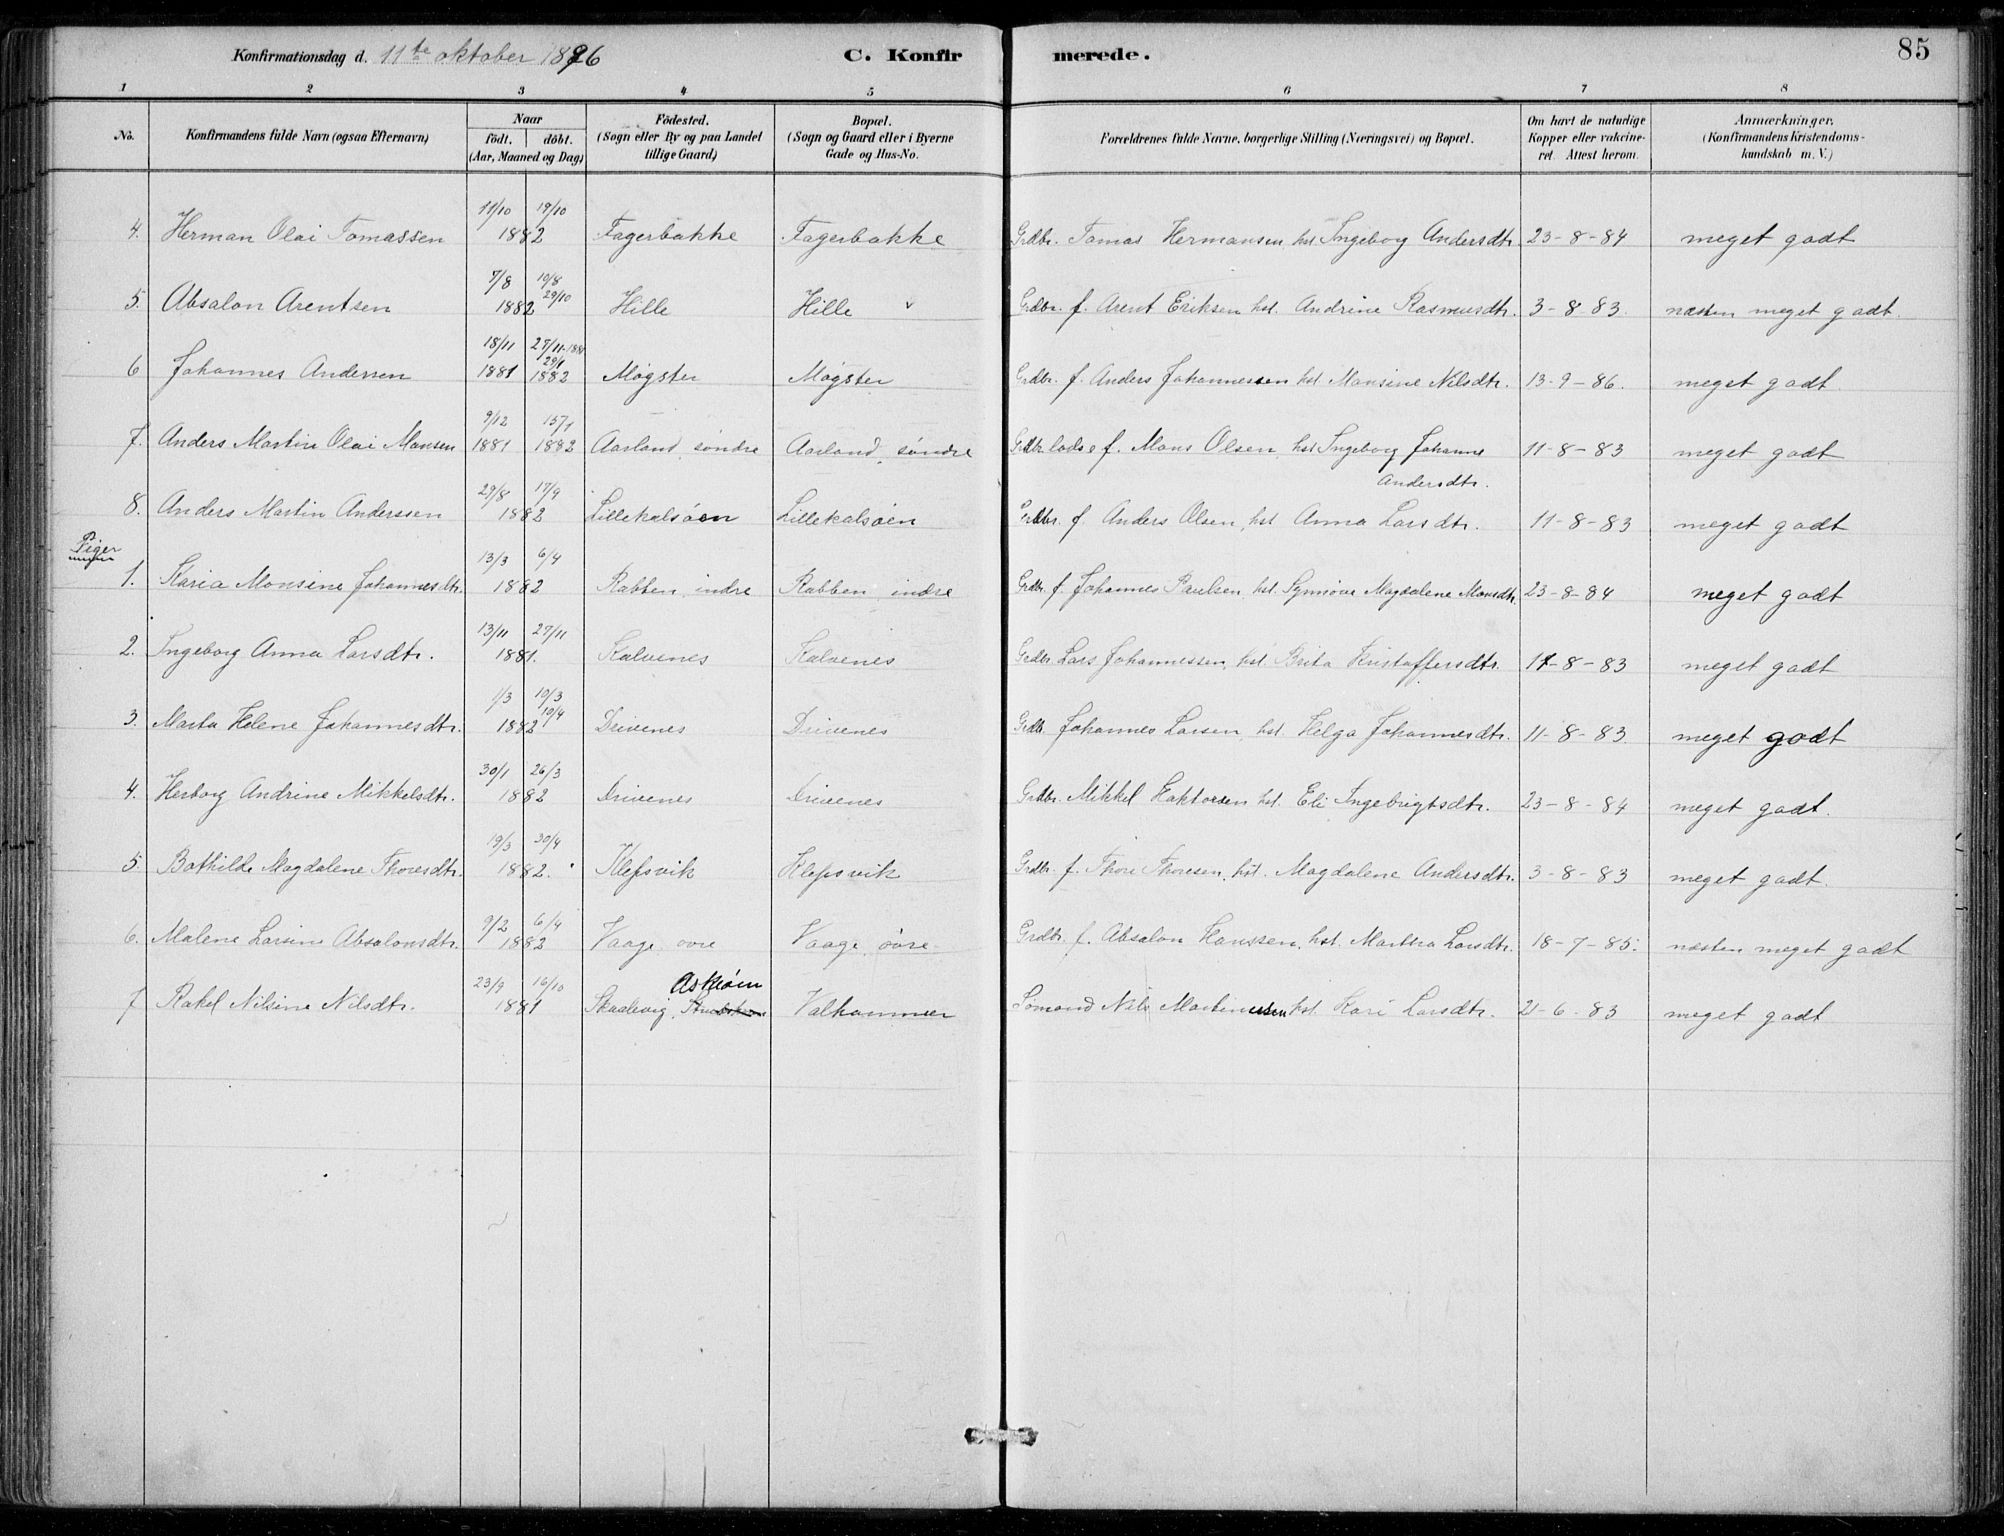 Konfirmationsdag d. 11te oktober 1896 C. Konfirmerede. 85
1 2 3 4 5 6 7 8
No. Konfirmandens fulde Navn (ogsaa Efternavn) Naar födt. döbt. (Aar, Maaned og Dag) Födested. (Sogn eller By og paa Landet tillige Gaard) Bopæl. (Sogn og Gaard eller i Byerne Gade og Hus-No. Forældrenes fulde Navne, borgerlige Stilling (Næringsvei) og Bopæl. Om havt de naturlige Kopper eller vakcineret. Attest herom. Anmærkninger, (Konfirmandens Kristendomskundskab m. V.)
4. Herman Olai Tomassen 11/10 19/10 1882 Fagerbakke Fagerbakke Grdbr. Tomas Hermansen, hst. Ingeborg Andersdtr. 23-8-84 meget godt
5. Absalon Arentsen 7/8 19/8 29/10 1882 Hille Hille Grdbr. f. Arent Eriksen hst. Andrine Rasmusdtr. 3-8-83. næsten meget godt.
6 Johannes Andersen 18/11 1881 27/11-1881 29/1 1882 Møgster Møgster Grdbr. f. Anders Johannessen hst. Monsine Nilsdtr. 13-9-86. meget godt.
7. Anders Martin Olai Monsen 9/12 1881 15/1 1882 Aarland, søndre Aarland, søndre Grdbr. lods og f. Mons Olsen, hst. Ingeborg Johanne Andersdtr. 11-8-83 meget godt
8. Anders Martin Anderssen 29/8 17/9 1882 Lillekalsøen Lillekalsøen Grdbr. f. Anders Olsen, hst. Anna Larsdtr. 11-8-83 meget godt
Piger
1. Karia Monsine Johannesdtr. 13/3 6/4 1882 Rabben, indre Rabben, indre Grdbr. f. Johannes Paulsen, hst. Synnøve Magdalene Monsdtr. 23-8-84 meget godt
2. Ingeborg Anna Larsdtr. 13/11 27/11 1881. Kalvenes Kalvenes Grdbr. Lars Johannessen, hst. Brita Kristoffersdtr. 11-8-83 meget godt
3. Marta Helene Johannesdtr. 1/3 10/3 10/4 1882 Drivenes Drivenes Grdbr. Johannes Larsen, hst. Helga Johannesdtr. 11-8-83. meget godt
4. Herborg Andrine Mikkelsdtr. 30/1 26/3 1882 Drivenes Drivenes Grdbr. Mikkel Haktorsen hst. Eli Ingebrigtsdtr. 23-8-84 meget godt.
5. Bothilde Magdalene Thoresdtr. 19/3 30/4 1882. Klepsvik Klepsvik Grdbr. f. Thore Thoresen, hst. Magdalene Andersdtr. 3-8-83 meget godt.
6. Malene Larsine Absalonsdtr. 9/2 6/4 1882 Vaage øvre Vaage, øvre Grdbr. f. Absalon Hanssen, hst. Martha Larsdtr. 18-7-85. næsten meget godt
7 Rakel Nilsine Nilsdtr. 23/9 16/10 1881 Skaalevig, Askøen Valhammer Sømand Nils Martinussen hst. Kari Larsdtr. 21-6-83 meget godt